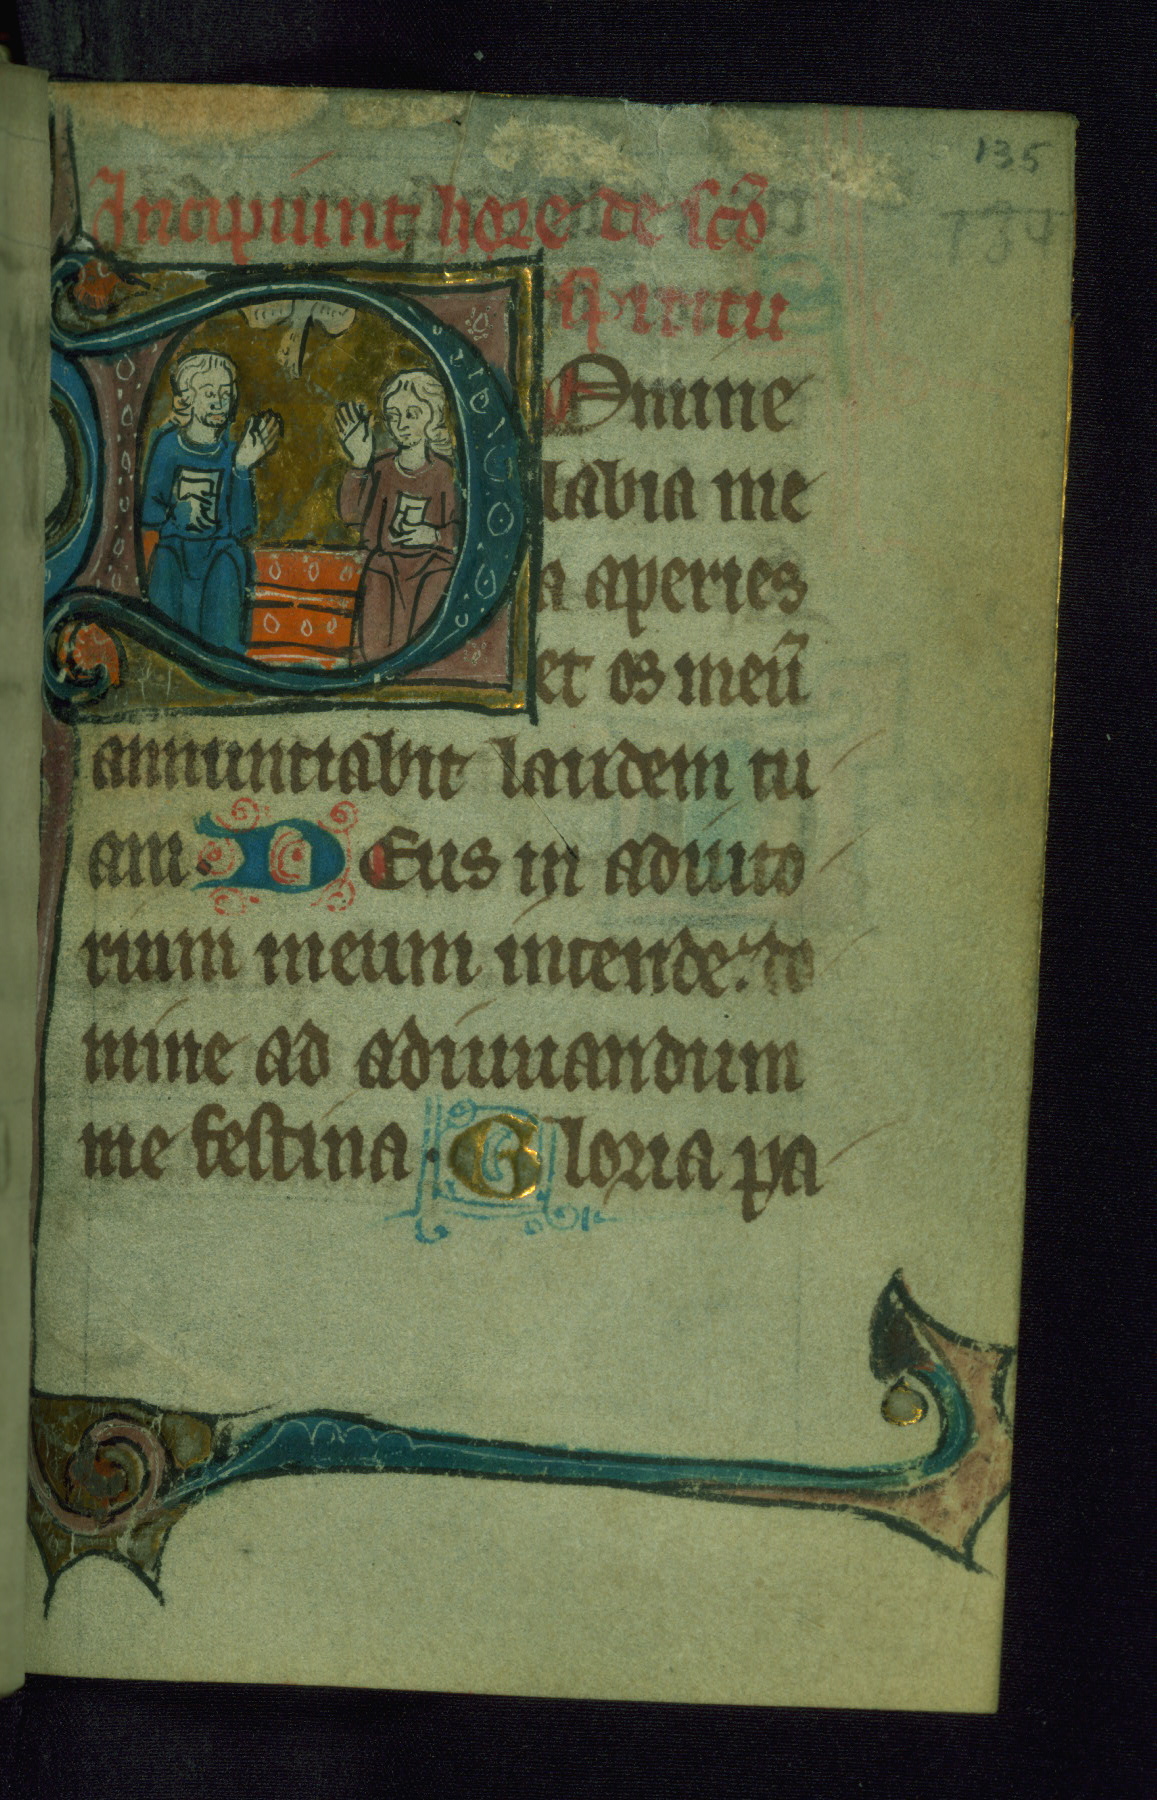 135
134
Incipiunt hore de sc̄o
spiritu
Domine
labia me
a aperies
et os meū
annuntiabit laudem tu
am. Deus in adiuto
rium meum intende. do
mine ad adiuuandum
me festina. Gloria pa